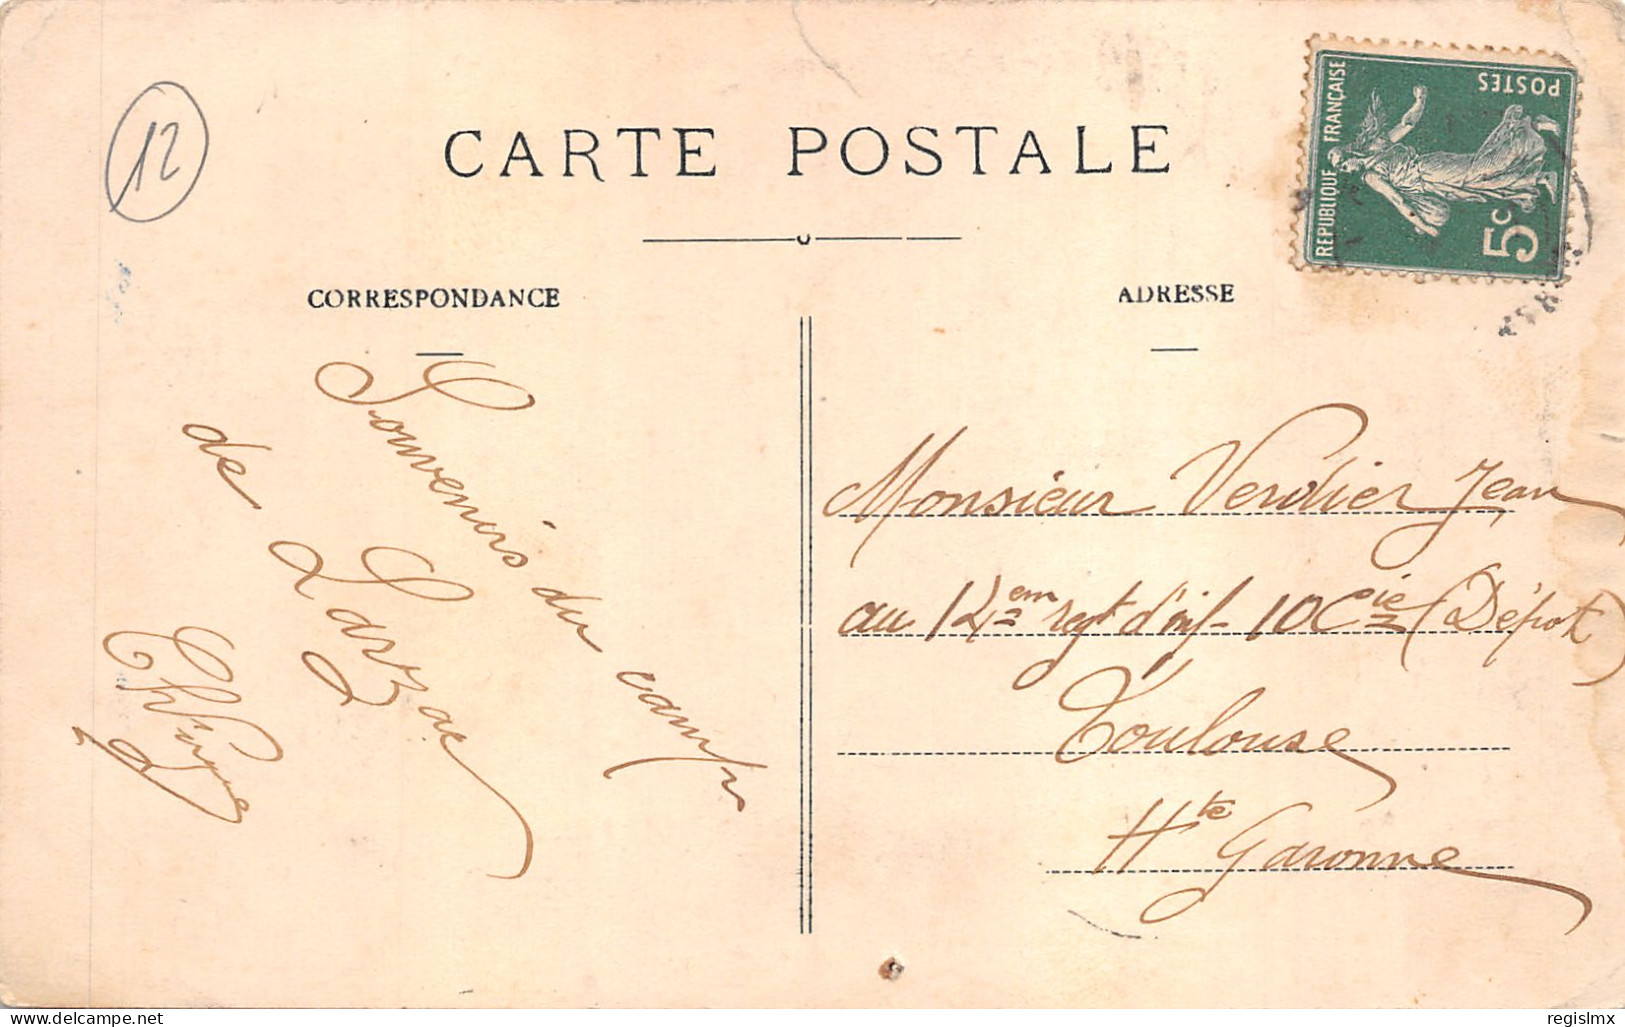 12
CARTE POSTALE
REPUBLIQUE FRANÇAISE
POSTES
5c
CORRESPONDANCE
ADRESSE
Souvenirs du camp
de Larzac
Monsieur Verdier Jean
au regt d'inf- 10 Cie (Dépot)
Toulouse
Hte Garonne
regislmx
www.delcampe.net